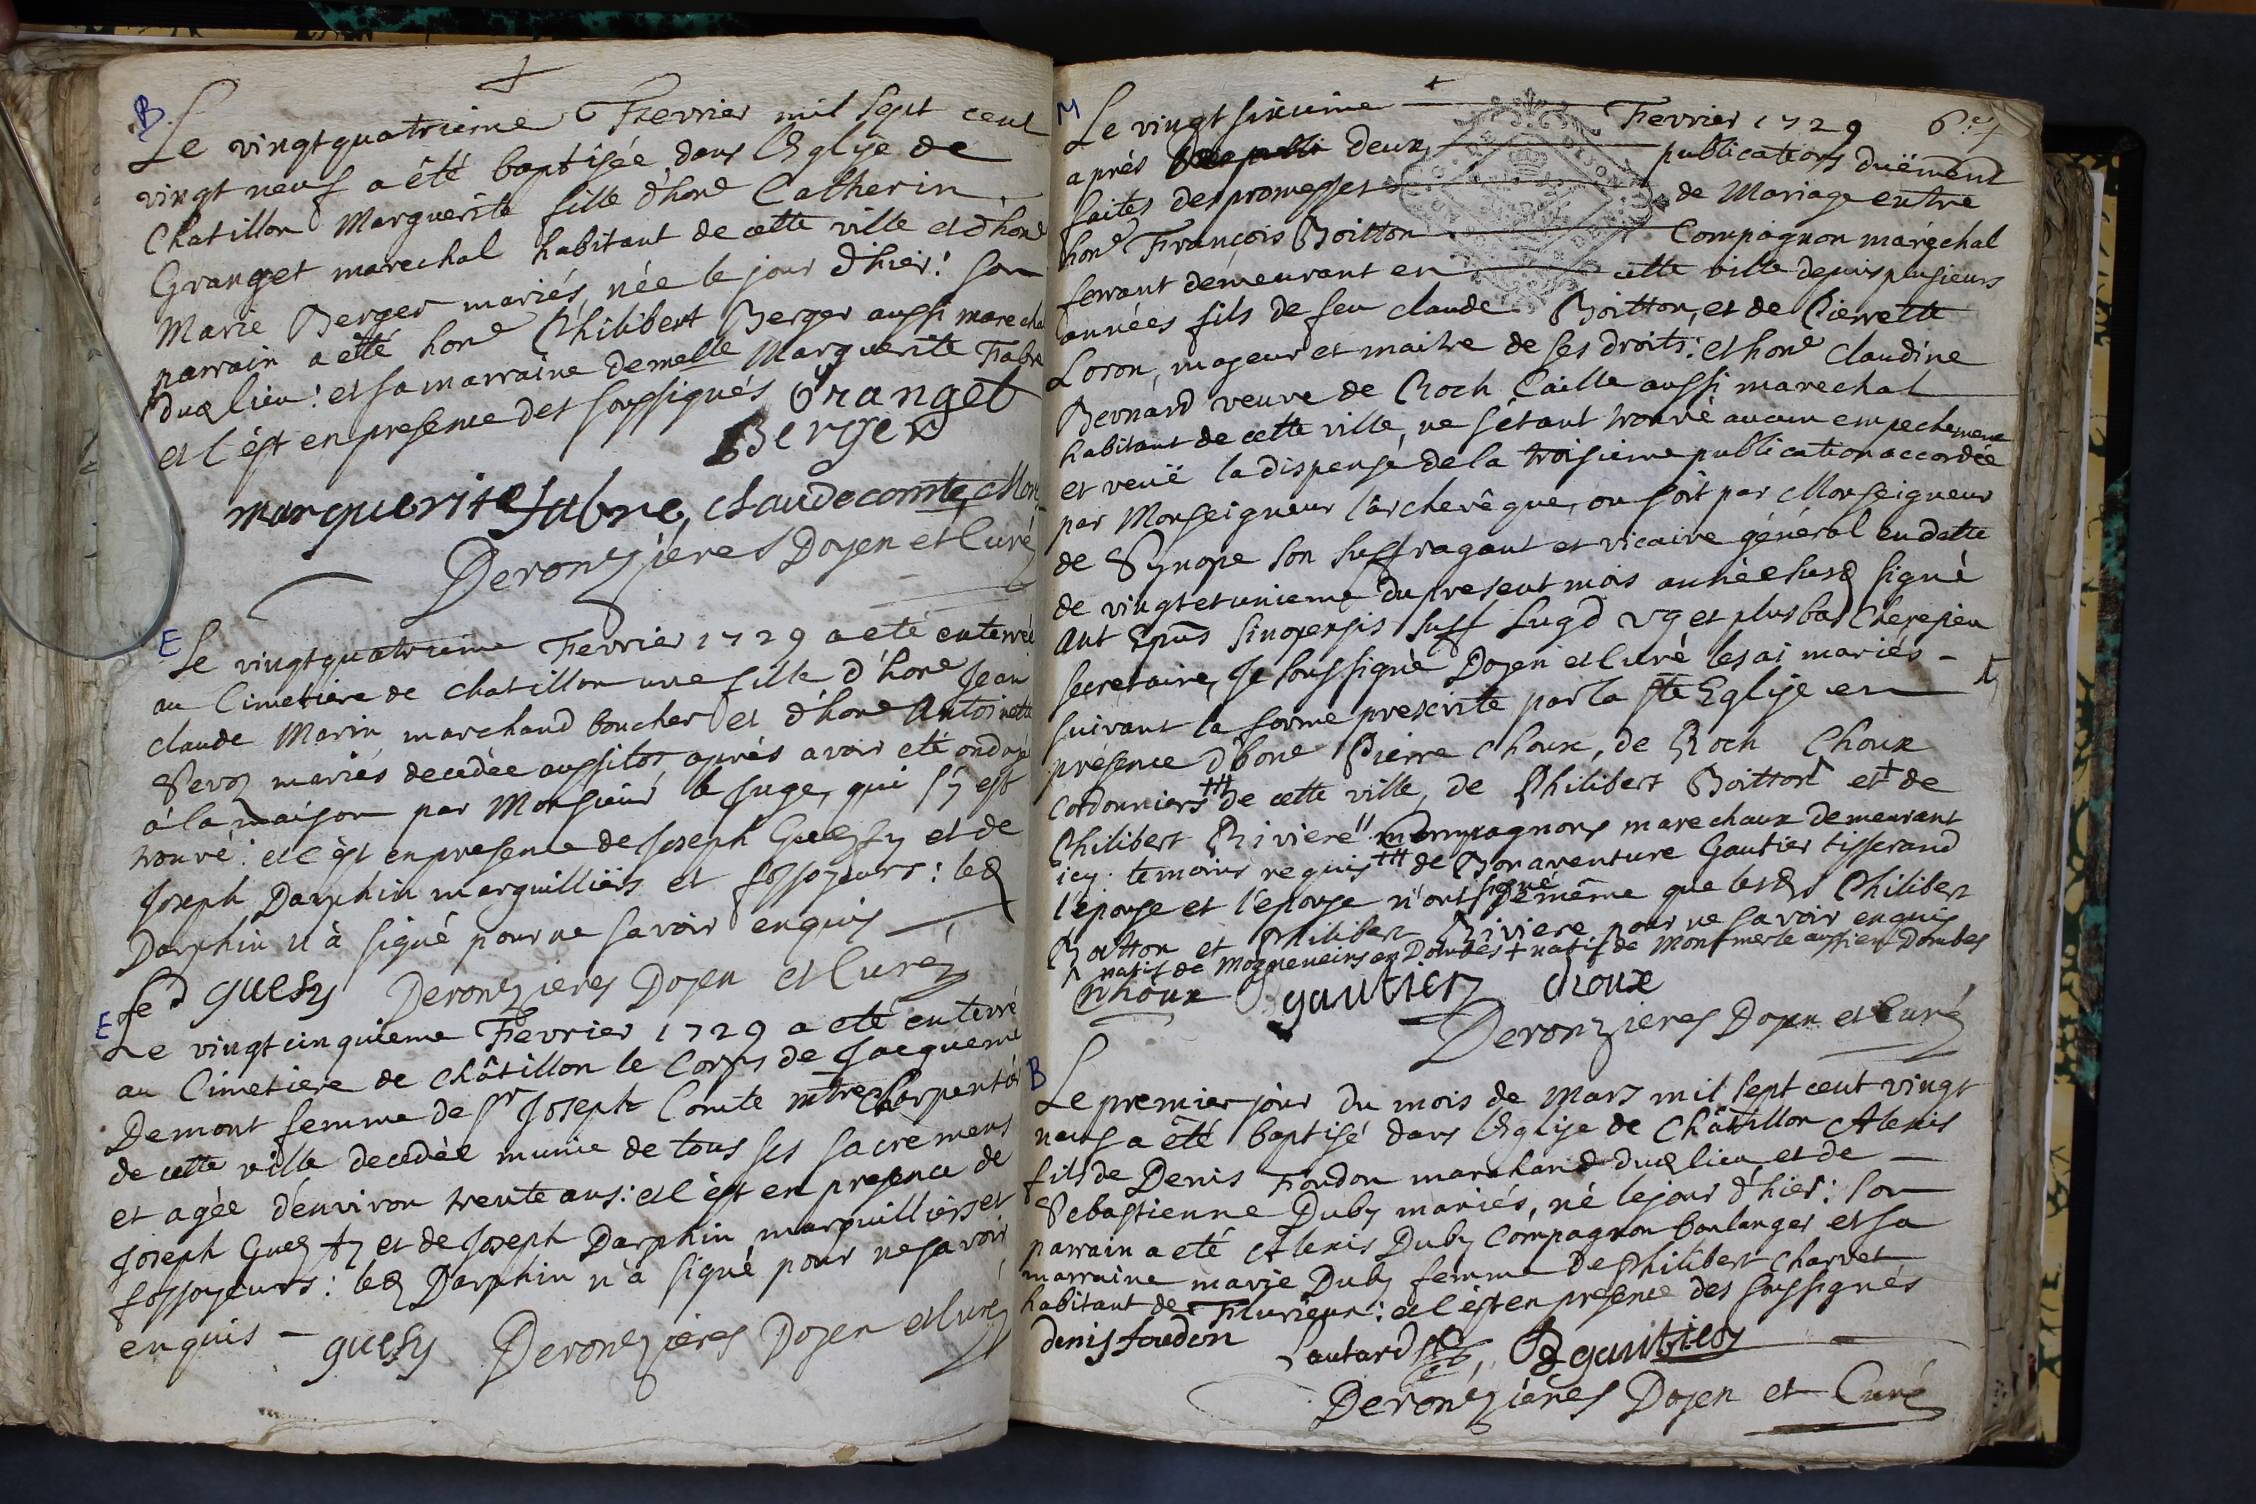 B
Le vingtquatrieme Fevrier mil sept cent
vingt neuf a êté baptisée dans l'Eglise de
Chatillon Marguerite fille d'hone Catherin
Granget marechal habitant de cette ville et d'hone
Marie Berger mariés, née le jour d'hier: son
parrain a êté hone Philibert Berger aussi marechal
dud lieu: et sa marraine demelle Marguerite Fabre
et c'est en presence des soussignés Granget
Berger
marguerite fabre, claude comte,
Deronzieres Doyen et Curé
E
Le vingtquatrieme Fevrier 1729 a eté enterrée
au Cimetiere de chatillon une fille d'hone Jean
claude Marin marchand boucher et d'hone Antoinette
Servz mariés decedée aussitôt après avoir eté ondoyée
à la maison par Monsieur le Juge, qui s'y est
trouvé: et c'est en presence de Joseph Guessy et de
Joseph Darphin marguilliers et fossoyeurs: led
Darphin n'à signé pour ne savoir enquis
guesy Deronzieres Doyen et Curé
E
Le vingt cinquieme Fevrier 1729 a eté enterré
au Cimetiere de châtillon le Corps de Jacqueme
Demont femme de sr Joseph Comte mtre Charpentier
de cette ville decedée munie de tous ses sacremens
et agée d'environ trente ans: et c'est en presence de
Joseph Guessy et de Joseph Darphin marguilliers et
fossoyeurs: led Darphin n'a signé pour ne savoir
enquis - guesy Deronzieres Doyen et Curé
M
Le vingt sixieme Fevrier 1729 6e
après deux publications duëment
faites des promesses de Mariage entre
hone François Boitton Compagnon maréchal
ferrant demeurant en cette ville depuis plusieurs
années fils de feu claude Boitton, et de Pierrette
Loron, majeur et maitre de ses droits: et hone Claudine
Bernard veuve de Roch Caille aussi marechal
habitant de cette ville, ne s'étant trouvé aucun empechement
et veuë la dispense de la troisieme publication accordée
par Monseigneur l'archevêque, ou soit par Monseigneur
de Synope son suffragant et vicaire général en datte
de vingt et unieme du present mois année susd signé
Ant Epus Sinopensis suff Lugd vg et plus bas Cheresieu
secretaire, Je soussigné Doyen et Curé les ai mariés -
suivant la forme prescrite par la ste Eglise en
présence d'hone Pierre Choux, de Roch Choux
cordonniers de cette ville, de Philibert Boitton et de
Philibert Riviere compagnons marechaux demeurant
icy temoins requis de Bonaventure Gautier tisserand
l'epouse et l'epouse n'ont signé de même que lesd Philibert
Boitton et Philibert Riviere pour ne savoir enquis
natif de Mogneneins en Dombes + natif de Montmerle aussi en Dombes
choux B gautier choux
Deronzieres Doyen et Curé
B
Le premier jour du mois de Mars mil sept cent vingt
neuf a êté baptisé dans l'Eglise de Châtillon Alexis
fils de Denis Foudon marchand dud lieu et de -
Sebastienne Duby mariés, né le jour d'hier: son
parrain a eté Alexis Duby Compagnon boulanger et sa
marraine marie Duby femme de Philibert Charvet
habitant de Flurieux: et c'est en presence des soussignés
denis foudon Lautard, B gautier
Deronzieres Doyen et Curé